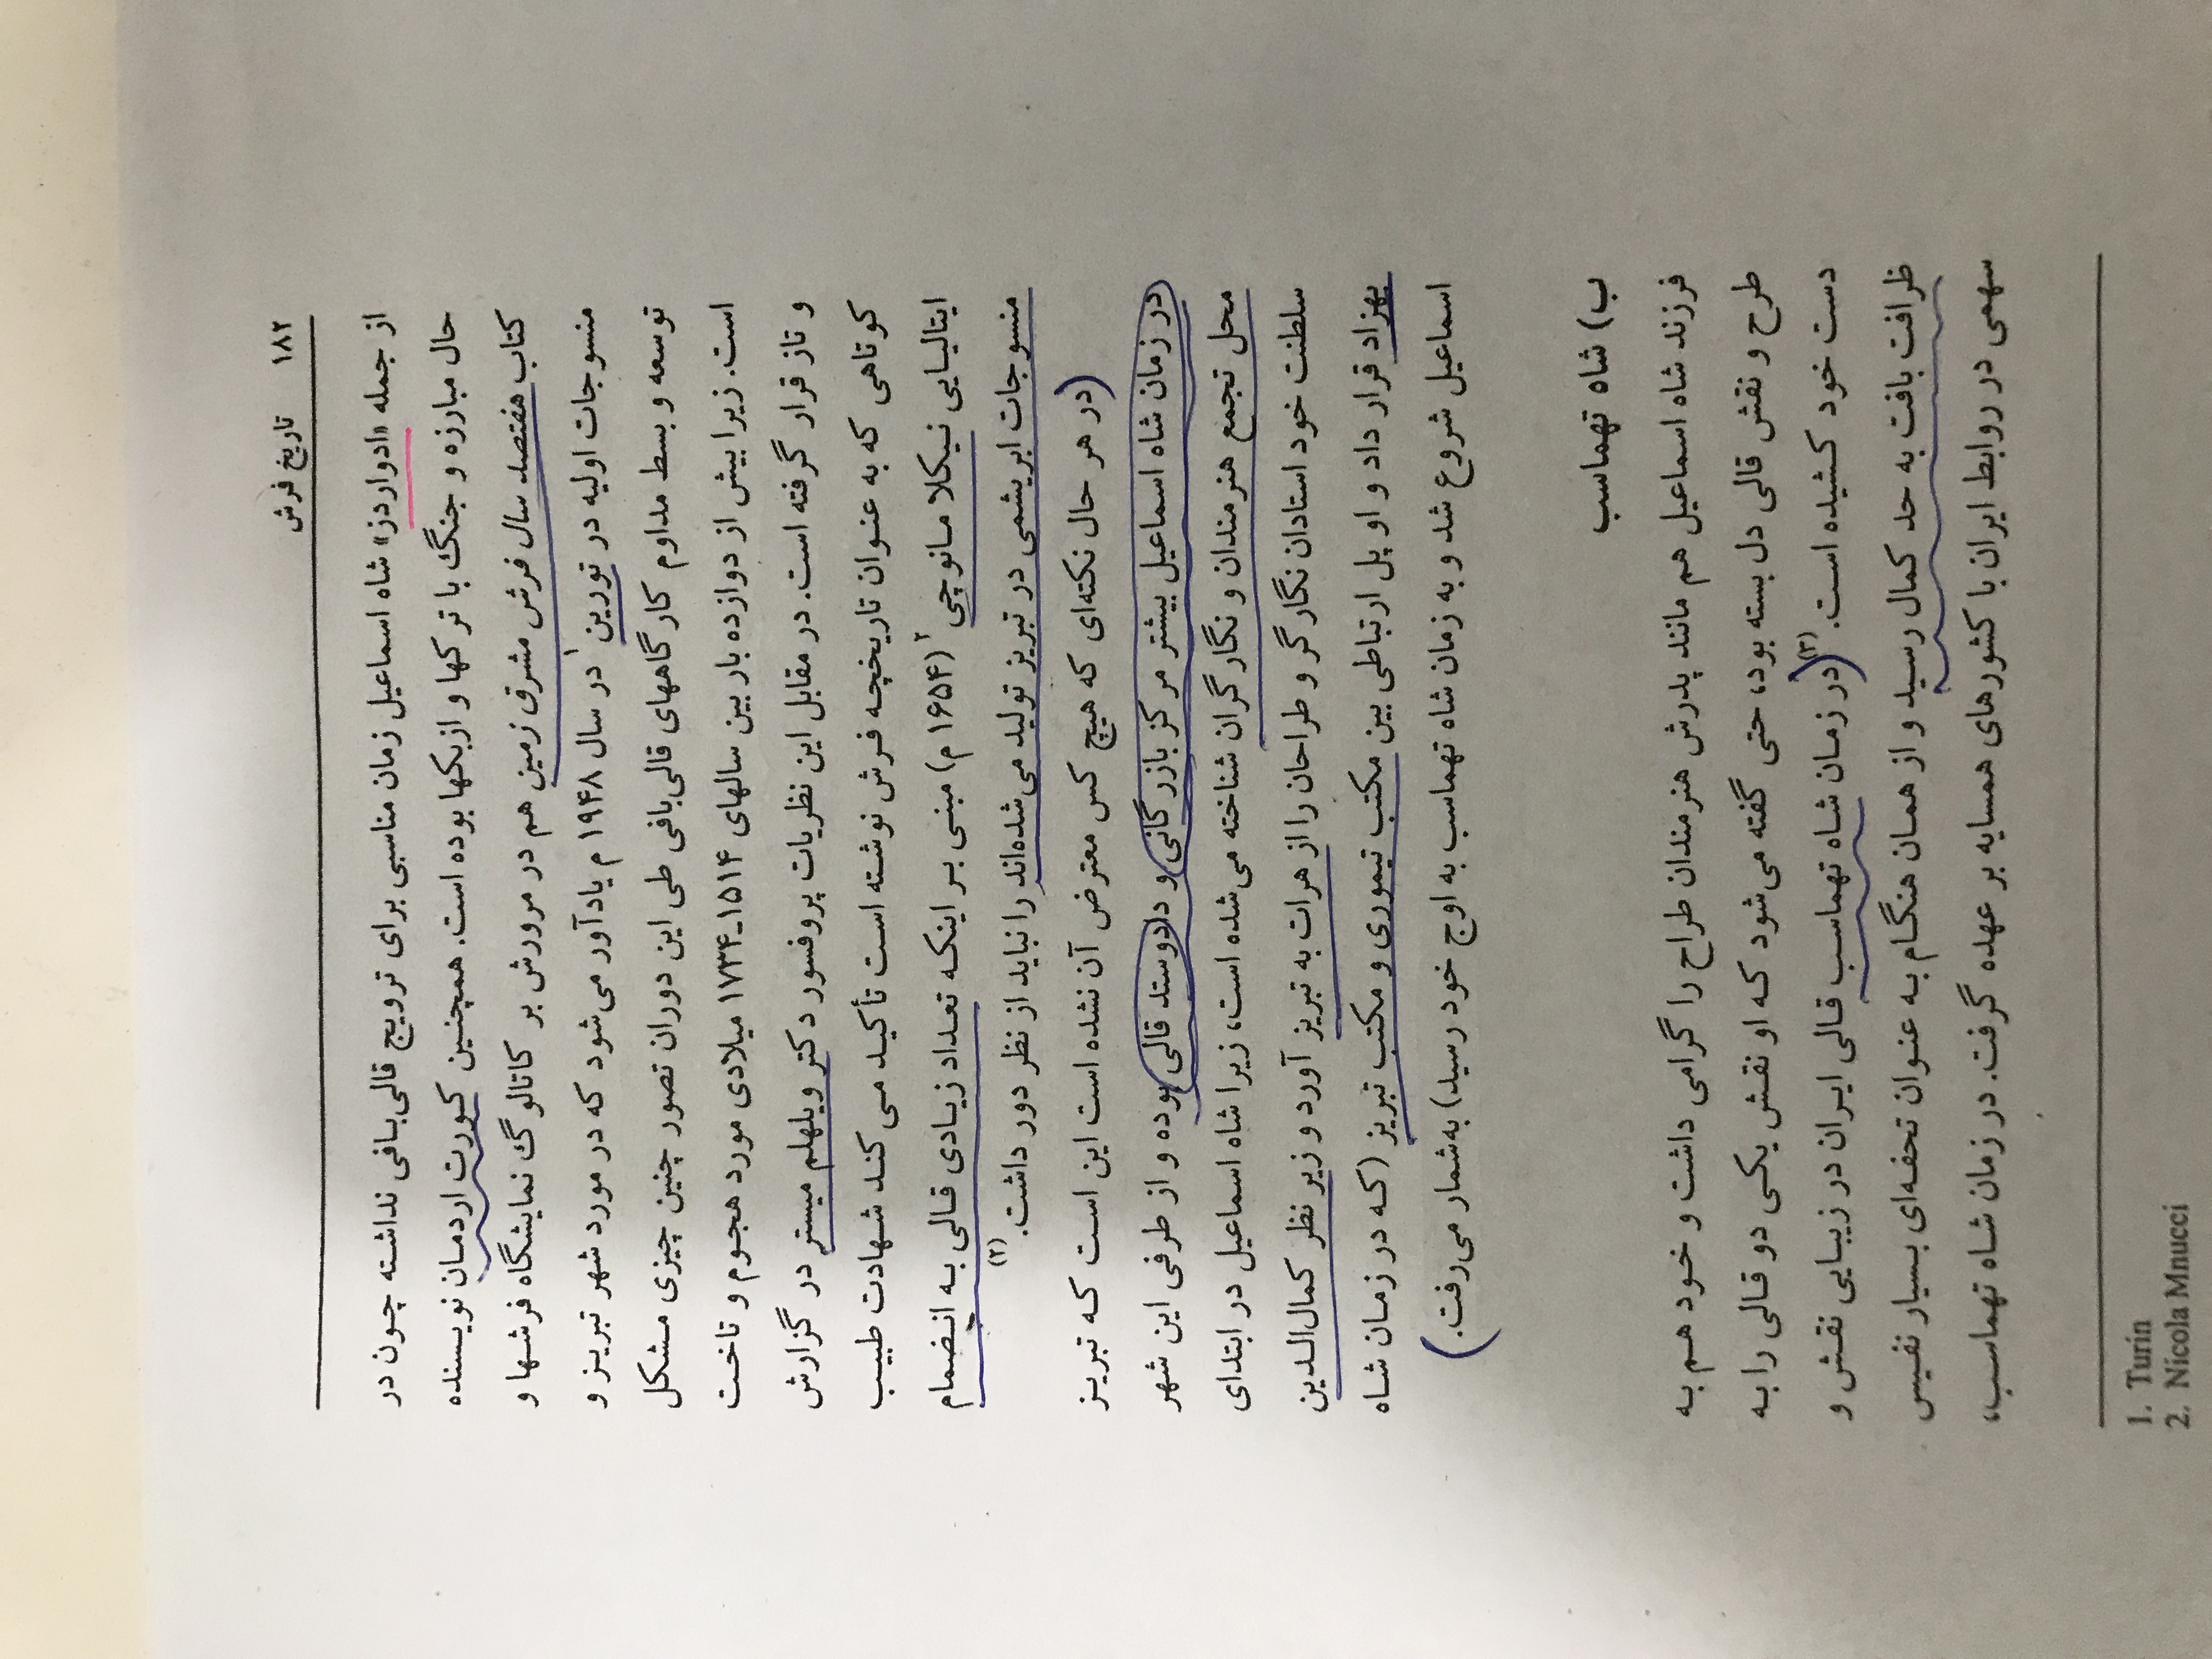 ۱۸۲ تاریخ فرش
از جمله «ادواردز» شاه اسماعیل زمان مناسبی برای ترویج قالی‌بافی نداشته چون در
حال مبارزه و جنگ با ترکها و ازبکها بوده است. همچنین کورت اردمان نویسنده
کتاب هفتصد سال فرش مشرق زمین هم در مرورش بر کاتالوگ نمایشگاه فرشها و
منسوجات اولیه در تورین۱ در سال ۱۹۴۸ م یادآور می‌شود که در مورد شهر تبریز و
توسعه و بسط مداوم کارگاههای قالی‌بافی طی این دوران تصور چنین چیزی مشکل
است. زیرا بیش از دوازده بار بین سالهای ۱۵۱۴ـ۱۷۳۴ میلادی مورد هجوم و تاخت
و تاز قرار گرفته است. در مقابل این نظریات پروفسور دکتر ویلهلم میستر در گزارش
کوتاهی که به عنوان تاریخچه فرش نوشته است تأکید می‌کند شهادت طبیب
ایتالیایی نیکلا مانوچی۲ (۱۶۵۴ م) مبنی بر اینکه تعداد زیادی قالی به انضمام
منسوجات ابریشمی در تبریز تولید می‌شده‌اند را نباید از نظر دور داشت.(۲)
(در هر حال نکته‌ای که هیچ کس معترض آن نشده است این است که تبریز
در زمان شاه اسماعیل بیشتر مرکز بازرگانی و دادوستد قالی بوده و از طرفی این شهر
محل تجمع هنرمندان و نگارگران شناخته می‌شده است، زیرا شاه اسماعیل در ابتدای
سلطنت خود استادان نگارگر و طراحان را از هرات به تبریز آورد و زیر نظر کمال‌الدین
بهزاد قرار داد و او پل ارتباطی بین مکتب تیموری و مکتب تبریز (که در زمان شاه
اسماعیل شروع شد و به زمان شاه تهماسب به اوج خود رسید) به‌شمار می‌رفت.)
ب) شاه تهماسب
فرزند شاه اسماعیل هم مانند پدرش هنرمندان طراح را گرامی داشت و خود هم به
طرح و نقش قالی دل بسته بود، حتی گفته می‌شود که او نقش یکی دو قالی را به
دست خود کشیده است.(۳) (در زمان شاه تهماسب قالی ایران در زیبایی نقش و
ظرافت بافت به حد کمال رسید و از همان هنگام به عنوان تحفه‌ای بسیار نفیس
سهمی در روابط ایران با کشورهای همسایه بر عهده گرفت. در زمان شاه تهماسب،
1. Turin
2. Nicola Mnucci